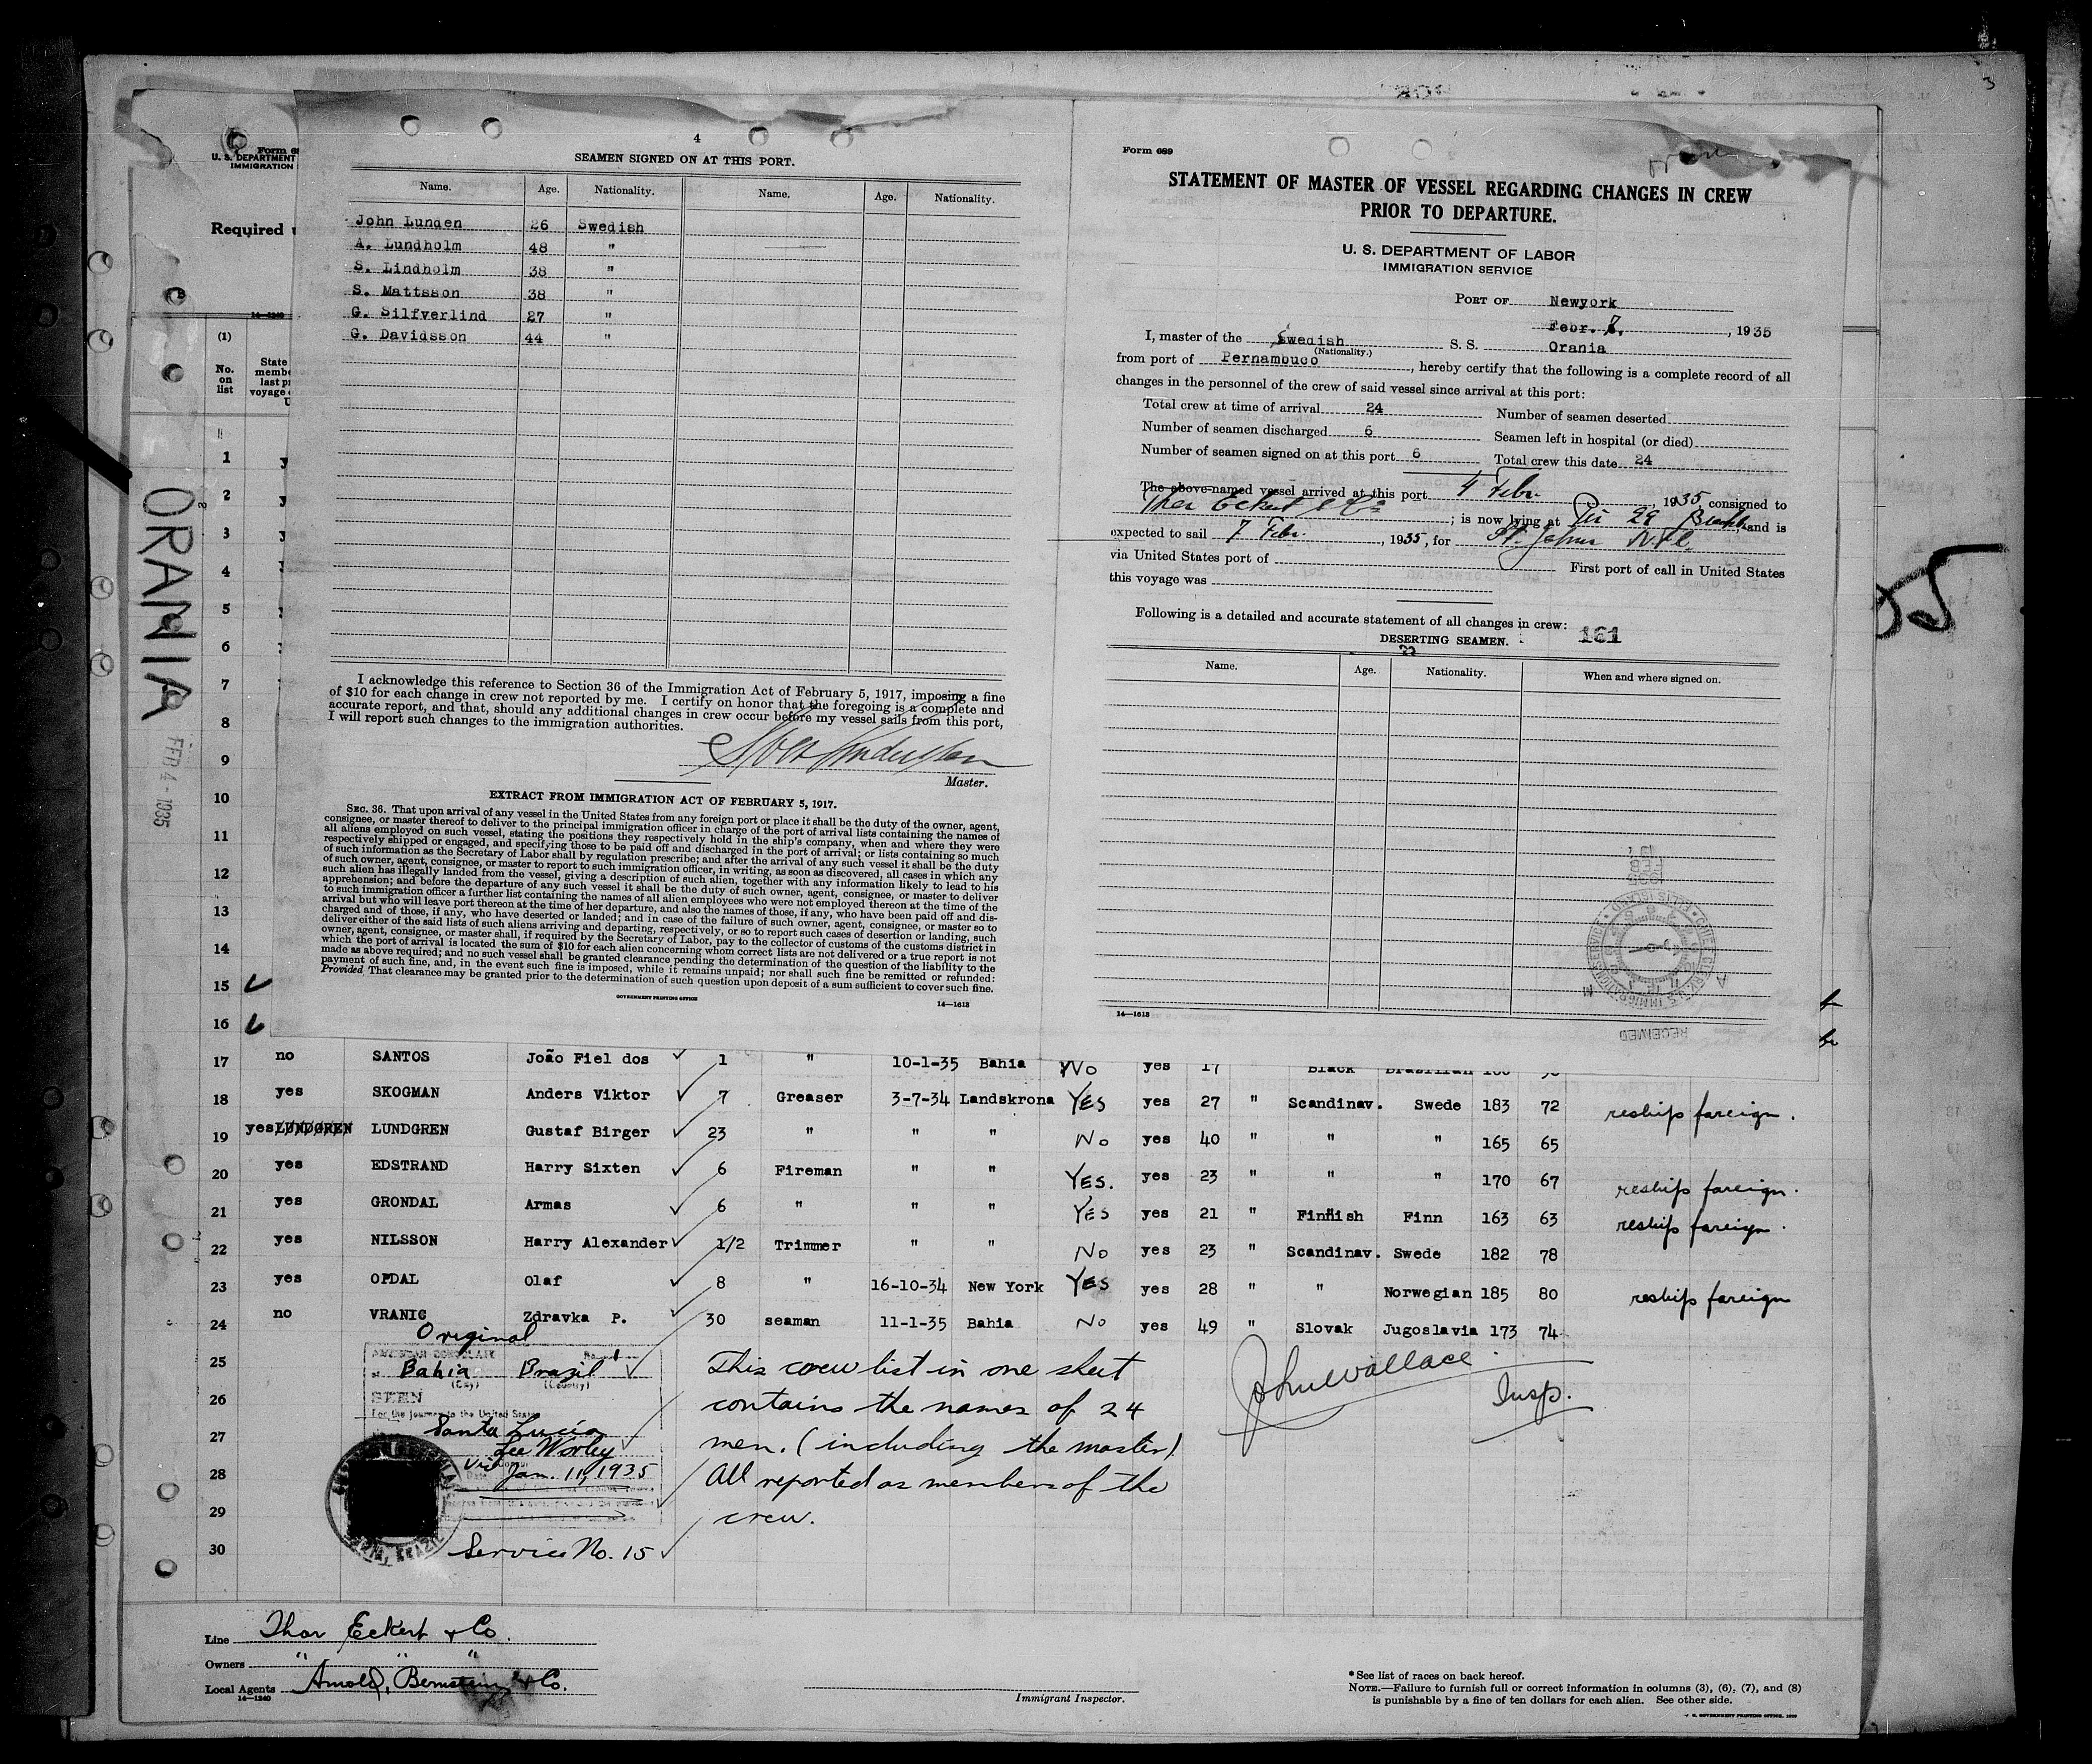 3
Form 689
U. S. DEPARTMENT
IMMIGRATION
Required
14—1240
(1)
No.
on
list
State
membe
last pr
voyage
U
1
2
3
4
5
6
7
8
9
10
11
12
13
14
15
16
ORANIA
FEB 4 - 1935
4
SEAMEN SIGNED ON AT THIS PORT.
Name. Age. Nationality. Name. Age. Nationality.
John Lunden 26 Swedish
A. Lundholm 48 "
S. Lindholm 38 "
S. Mattsson 38 "
G. Silfverlind 27 "
G. Davidsson 44 "
I acknowledge this reference to Section 36 of the Immigration Act of February 5, 1917, imposing a fine
of $10 for each change in crew not reported by me. I certify on honor that the foregoing is a complete and
accurate report, and that, should any additional changes in crew occur before my vessel sails from this port,
I will report such changes to the immigration authorities.
Master.
EXTRACT FROM IMMIGRATION ACT OF FEBRUARY 5, 1917.
SEC. 36. That upon arrival of any vessel in the United States from any foreign port or place it shall be the duty of the owner, agent,
consignee, or master thereof to deliver to the principal immigration officer in charge of the port of arrival lists containing the names of
all aliens employed on such vessel, stating the positions they respectively hold in the ship's company, when and where they were
respectively shipped or engaged, and specifying those to be paid off and discharged in the port of arrival; or lists containing so much
of such information as the Secretary of Labor shall by regulation prescribe; and after the arrival of any such vessel it shall be the duty
of such owner, agent, consignee, or master to report to such immigration officer, in writing, as soon as discovered, all cases in which any
such alien has illegally landed from the vessel, giving a description of such alien, together with any information likely to lead to his
apprehension; and before the departure of any such vessel it shall be the duty of such owner, agent, consignee, or master to deliver
to such immigration officer a further list containing the names of all alien employees who were not employed thereon at the time of the
arrival but who will leave port thereon at the time of her departure, and also the names of those, if any, who have been paid off and dis-
charged and of those, if any, who have deserted or landed; and in case of the failure of such owner, agent, consignee, or master so to
deliver either of the said lists of such aliens arriving and departing, respectively, or so to report such cases of desertion or landing, such
owner, agent, consignee, or master shall, if required by the Secretary of Labor, pay to the collector of customs of the customs district in
which the port of arrival is located the sum of $10 for each alien concerning whom correct lists are not delivered or a true report is not
made as above required; and no such vessel shall be granted clearance pending the determination of the question of the liability to the
payment of such fine, and, in the event such fine is imposed, while it remains unpaid; nor shall such fine be remitted or refunded:
Provided That clearance may be granted prior to the determination of such question upon deposit of a sum sufficient to cover such fine.
GOVERNMENT PRINTING OFFICE 14—1613
Form 689
STATEMENT OF MASTER OF VESSEL REGARDING CHANGES IN CREW
PRIOR TO DEPARTURE.
U. S. DEPARTMENT OF LABOR
IMMIGRATION SERVICE
PORT OF Newyork
Febr. 7, 1935
I, master of the Swedish S. S. Orania
(Nationality.)
from port of Pernambuco, hereby certify that the following is a complete record of all
changes in the personnel of the crew of said vessel since arrival at this port:
Total crew at time of arrival 24 Number of seamen deserted
Number of seamen discharged 6 Seamen left in hospital (or died)
Number of seamen signed on at this port 6 Total crew this date 24
The above-named vessel arrived at this port 4 Febr., 1935 consigned to
Thor Eckert & Co ; is now lying at Pier 29 and is
expected to sail 7 Febr., 1935, for St. Johns N.F.
via United States port of First port of call in United States
this voyage was
Following is a detailed and accurate statement of all changes in crew:
DESERTING SEAMEN. 161
Name. Age. Nationality. When and where signed on.
RECEIVED
14—1613
17 no SANTOS João Fiel dos 1 " 10-1-35 Bahia No yes 17 " Black Brazilian
18 yes SKOGMAN Anders Viktor 7 Greaser 3-7-34 Landskrona YES yes 27 " Scandinav. Swede 183 72 reship foreign.
19 yes LUNDGREN LUNDGREN Gustaf Birger 23 " " " No yes 40 " " " 165 65
20 yes EDSTRAND Harry Sixten 6 Fireman " " YES. yes 23 " " " 170 67 reship foreign.
21 yes GRONDAL Armas 6 " " " YES yes 21 " Finnish Finn 163 63 reship foreign.
22 yes NILSSON Harry Alexander 1/2 Trimmer " " No yes 23 " Scandinav. Swede 182 78
23 yes OPDAL Olaf 8 " 16-10-34 New York YES yes 28 " " Norwegian 185 80 reship foreign
24 no VRANIC Zdravka P. 30 seaman 11-1-35 Bahia No yes 49 " Slovak Jugoslavia 173 74
25
26
27
28
29
30
Original
AMERICAN CONSULATE
Bahia Brazil
(City) (Country)
SEEN
For the journey to the United States
Santa Lucia
Lee Worley
Vice Consul
Jan. 11, 1935
Service No. 15
This crew list in one sheet
contains the names of 24
men. (including the master)
All reported as members of the
crew.
John Wallace
Insp.
Line Thor Eckert & Co.
Owners " " "
Local Agents Arnold, Bernstein & Co.
14—1240
Immigrant Inspector.
* See list of races on back hereof.
NOTE.—Failure to furnish full or correct information in columns (3), (6), (7), and (8)
is punishable by a fine of ten dollars for each alien. See other side.
U. S. GOVERNMENT PRINTING OFFICE